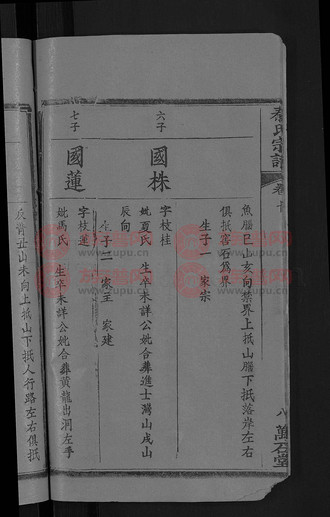 秦氏宗譜
卷十
八 萬石堂
魚腦巳山亥向禁界上抵山腦下抵落岸左右
俱抵窖石為界
生子一 家崇
六子
國株
字枝桂
妣夏氏 生卒未詳公妣合葬進士灣山戌山
辰向
生子二 家圭 家建
七子
國蓮
字枝蓮
妣馬氏 生卒未詳公妣合葬黃龍出洞左手
灰背丑山未向上抵山下抵人行路左右俱抵